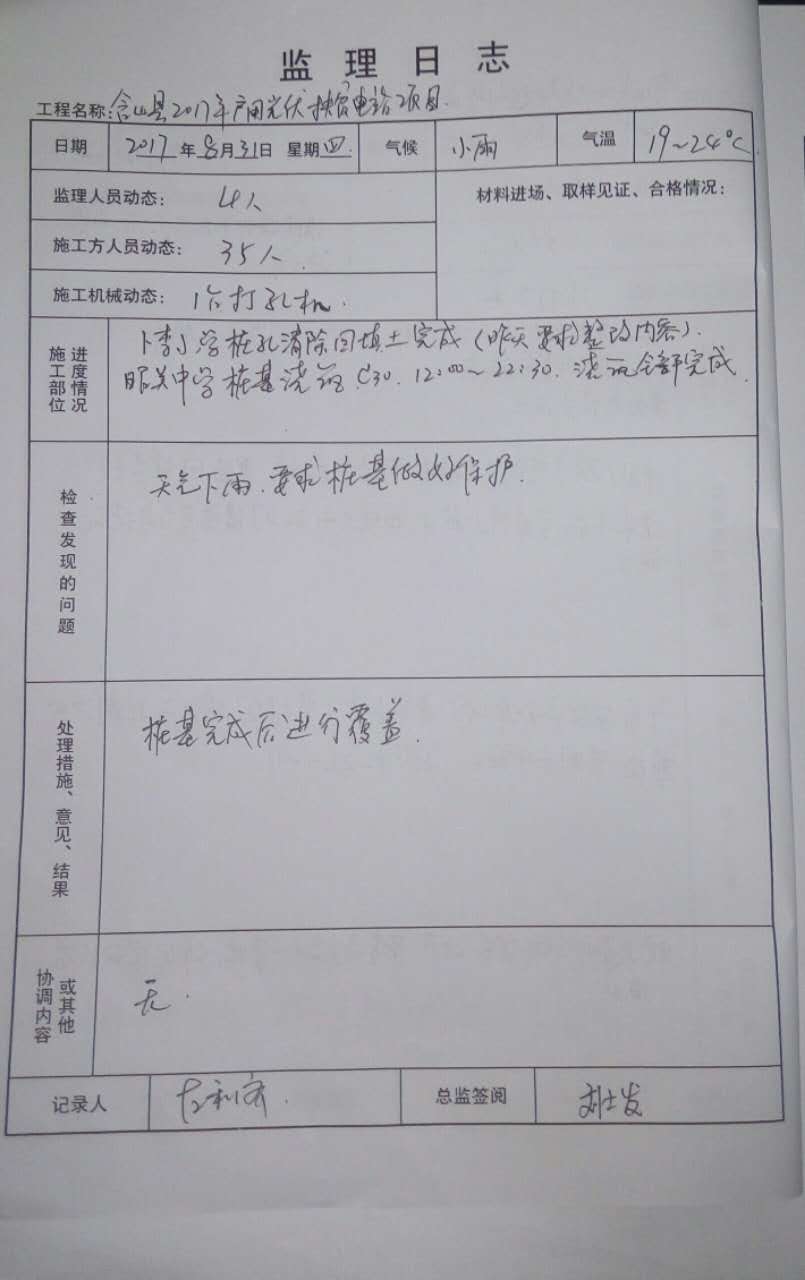 监理日志
工程名称:含山县2017年户用光伏扶贫电站项目.
日期 2017年8月31日 星期四. 气候 小雨 气温 19~24℃
监理人员动态: 4人 材料进场、取样见证、合格情况:
施工方人员动态: 35人.
施工机械动态: 1台打孔机.
施工部位进度情况
卜李小学桩孔清除回填土完成(昨天要求整改内容).
昭关中学桩基浇筑C30. 12:00~22:30. 浇筑全部完成.
检查发现的问题
天气下雨.要求桩基做好保护.
处理措施、意见、结果
桩基完成后进行覆盖.
协调内容或其他
无.
记录人 总监签阅 刘士发